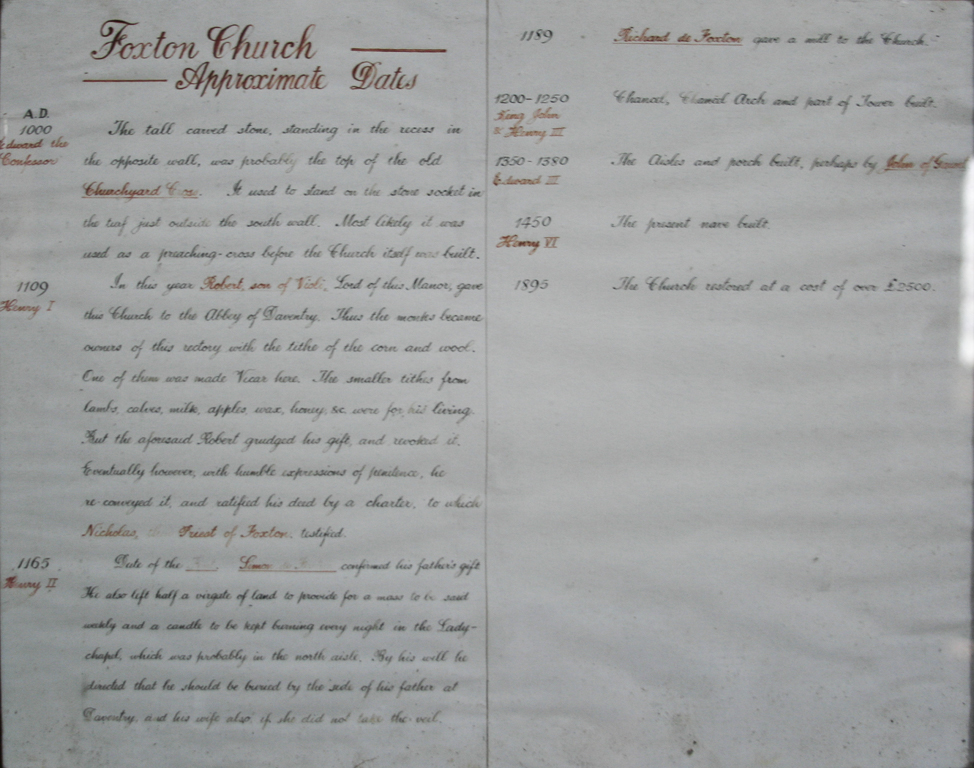 Foxton Church
Approximate Dates
A.D.
1000
Edward the
Confessor
The tall carved stone, standing in the recess in
the opposite wall, was probably the top of the old
Churchyard Cross. It used to stand on the stone socket in
the turf just outside the south wall. Most likely it was
used as a preaching-cross before the Church itself was built.
1109
Henry I
In this year Robert, son of Violi, Lord of this Manor, gave
this Church to the Abbey of Daventry. Thus the monks became
owners of this rectory with the tithe of the corn and wool.
One of them was made Vicar here. The smaller tithes from
lambs, calves, milk, apples, wax, honey, &c. were for his living.
But the aforesaid Robert grudged his gift, and revoked it.
Eventually however, with humble expressions of penitence, he
re-conveyed it, and ratified his deed by a charter, to which
Nicholas, Priest of Foxton. testified.
1165
Henry II
Date of the Simon confirmed his father's gift
He also left half a virgate of land to provide for a mass to be said
weekly and a candle to be kept burning every night in the Lady-
chapel, which was probably in the north aisle. By his will he
directed that he should be buried by the side of his father at
Daventry, and his wife also, if she did not take the veil.
1189
Richard de Foxton gave a mill to the Church.
1200-1250
King John
& Henry III
Chancel, Chancel Arch and part of Tower built.
1350-1380
Edward III
The Aisles and porch built, perhaps by John of Gaunt
1450
Henry VI
The present nave built.
1895
The Church restored at a cost of over £2500.